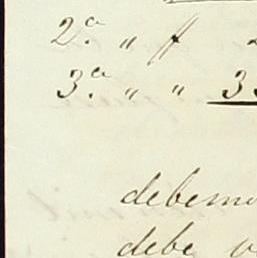 2ª. " "
3ª. " " 3
debemo
debe